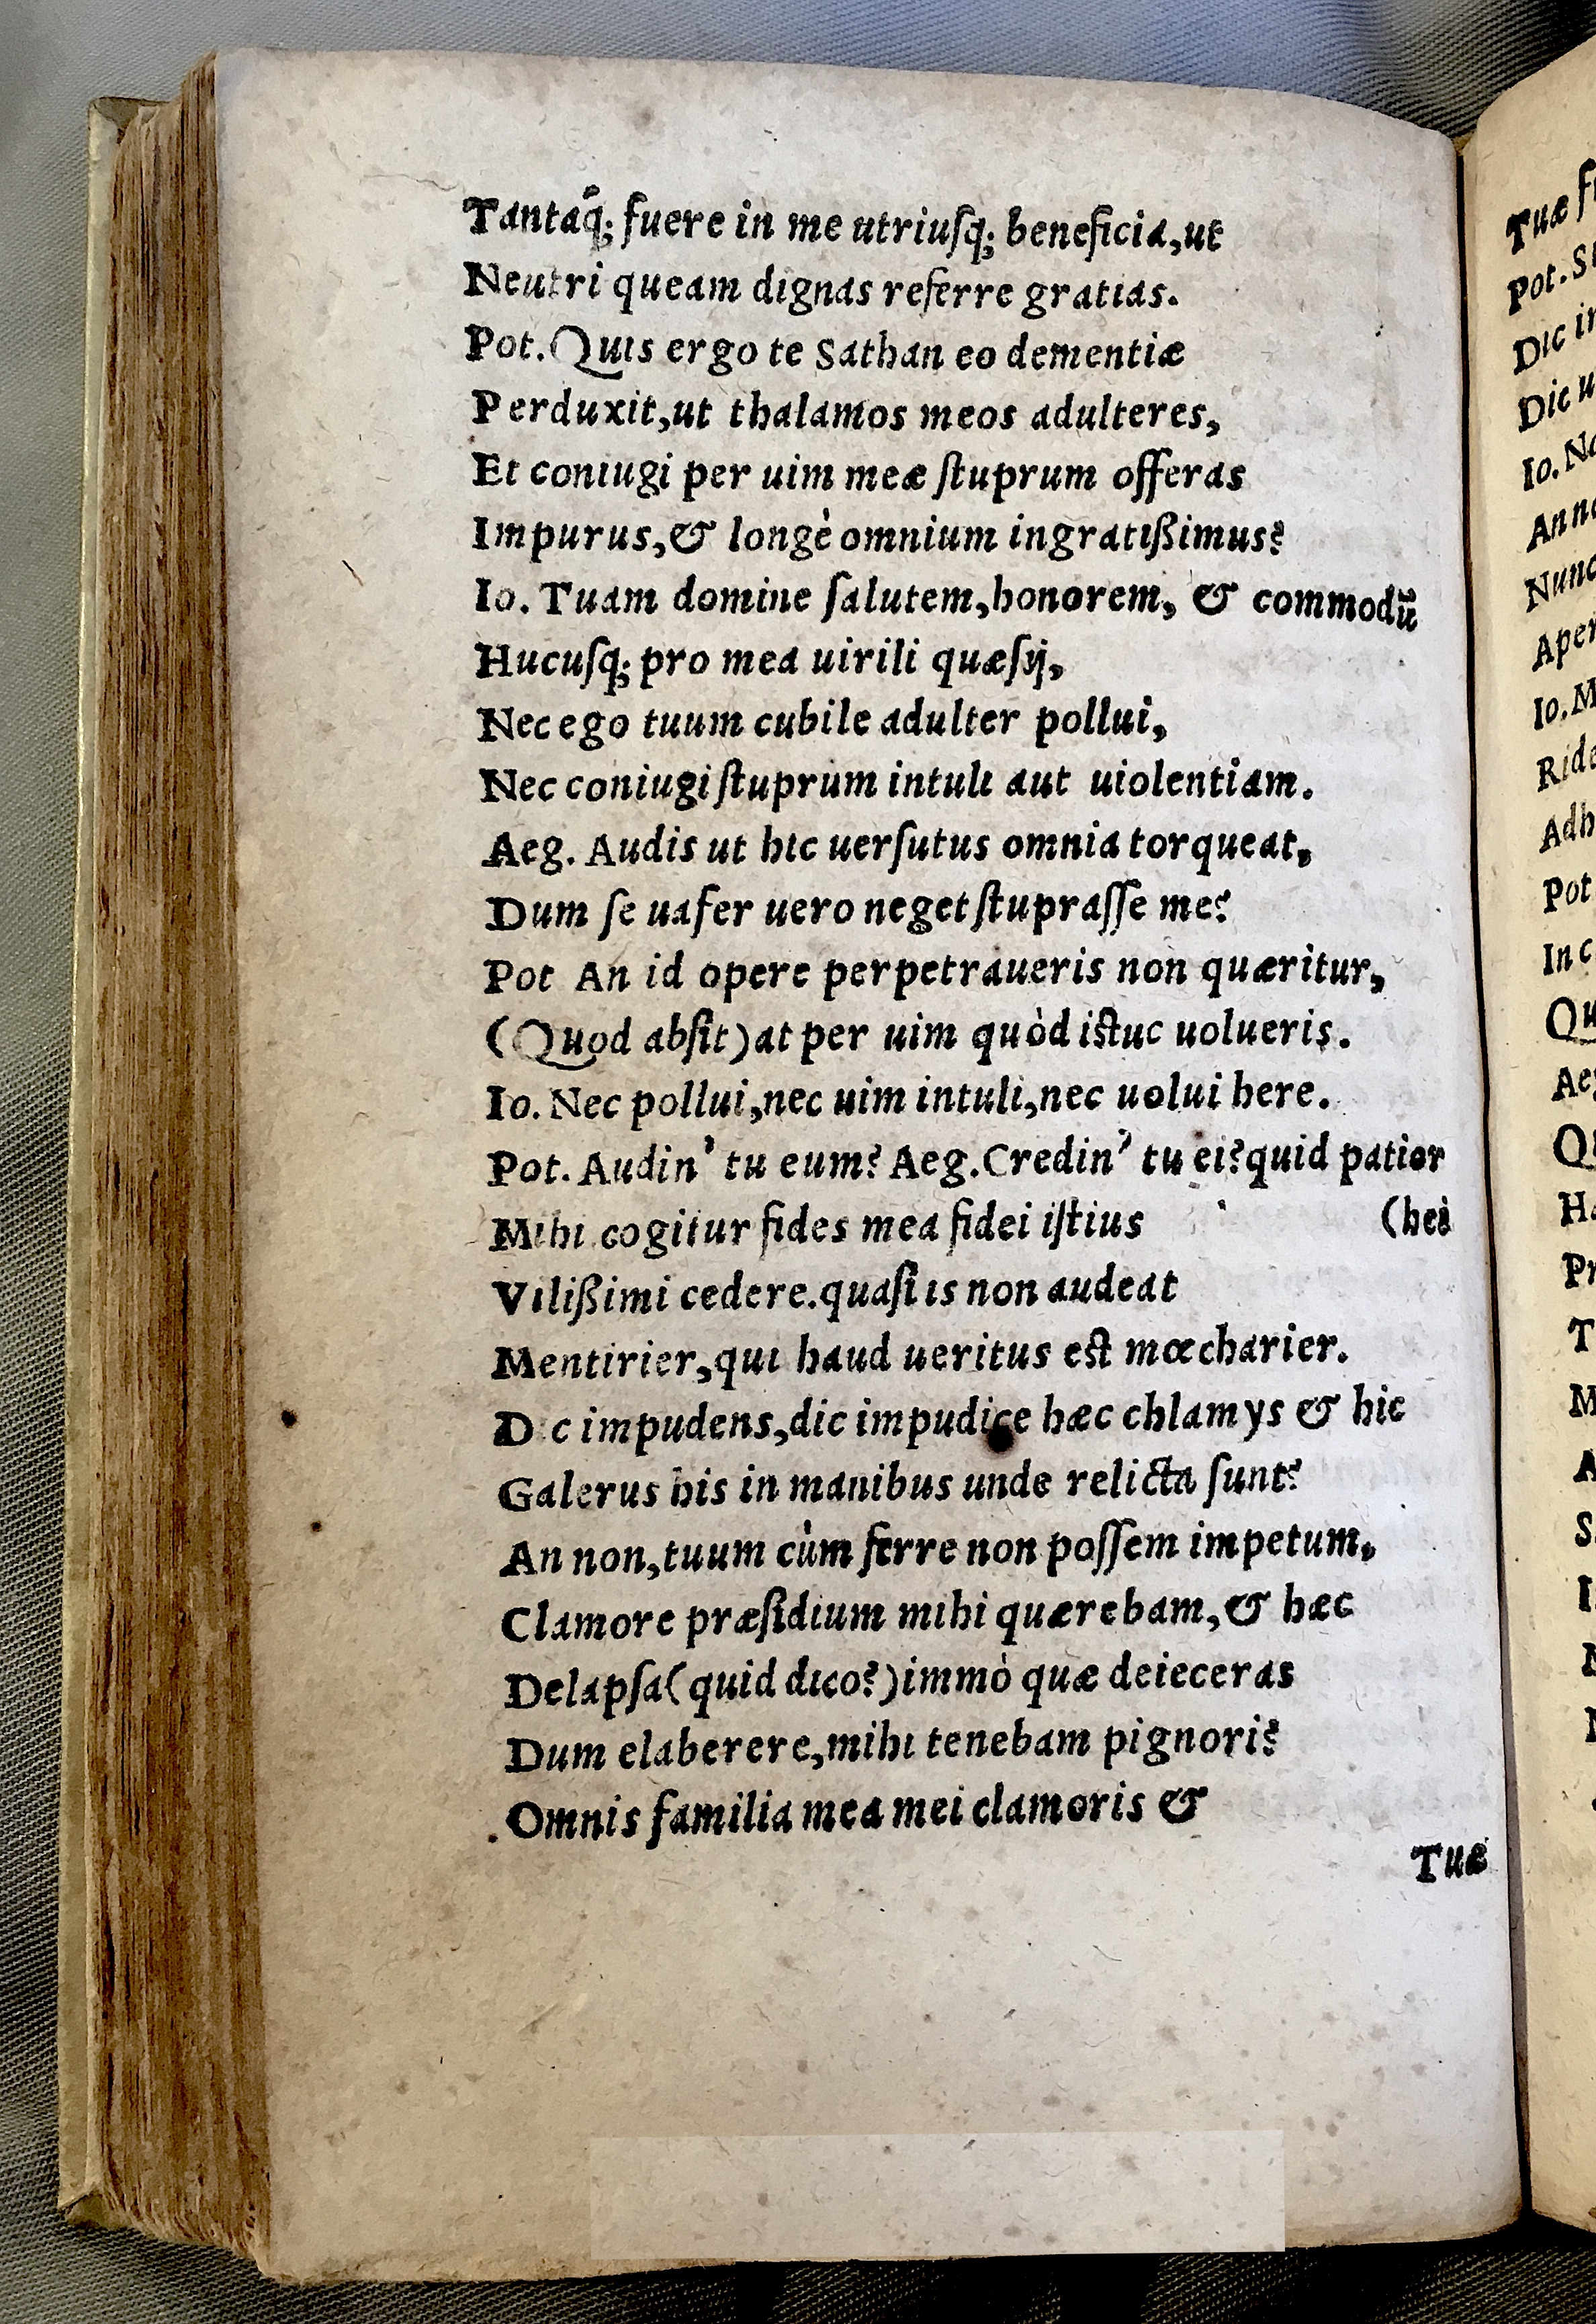 Tantaq́; fuere in me utriuſq; beneficia,ut
Neutri queam dignas referre gratias.
Pot. Quis ergo te Sathan eo dementiæ
Perduxit,ut thalamos meos adulteres,
Et coniugi per uim meæ ſtuprum offeras
Impurus,& longè omnium ingratißimus?
Io. Tuam domine ſalutem,honorem, & commodū
Hucuſq; pro mea uirili quæſij,
Nec ego tuum cubile adulter pollui,
Nec coniugi ſtuprum intuli aut uiolentiam.
Aeg. Audis ut hic uerſutus omnia torqueat,
Dum ſe uafer uero neget ſtupraſſe me?
Pot An id opere perpetraueris non quæritur,
(Quod abſit) at per uim quòd iſtuc uolueris.
Io. Nec pollui,nec uim intuli,nec uolui here.
Pot. Audin' tu eum? Aeg. Credin' tu ei? quid patior
Mihi cogitur fides mea fidei iſtius (hei
Vilißimi cedere. quaſi is non audeat
Mentirier,qui haud ueritus eſt mœcharier.
Dic impudens,dic impudice hæc chlamys & hic
Galerus his in manibus unde relicta ſunt?
An non,tuum cùm ferre non poſſem impetum,
Clamore præſidium mihi quærebam,& hæc
Delapſa (quid dico?) immò quæ deieceras
Dum elaberere,mihi tenebam pignori?
Omnis familia mea mei clamoris &
Tuæ
Tuæ
Pot.
Dic
Dic
Io.
Nunc
Io.
Pot
In
Aeg